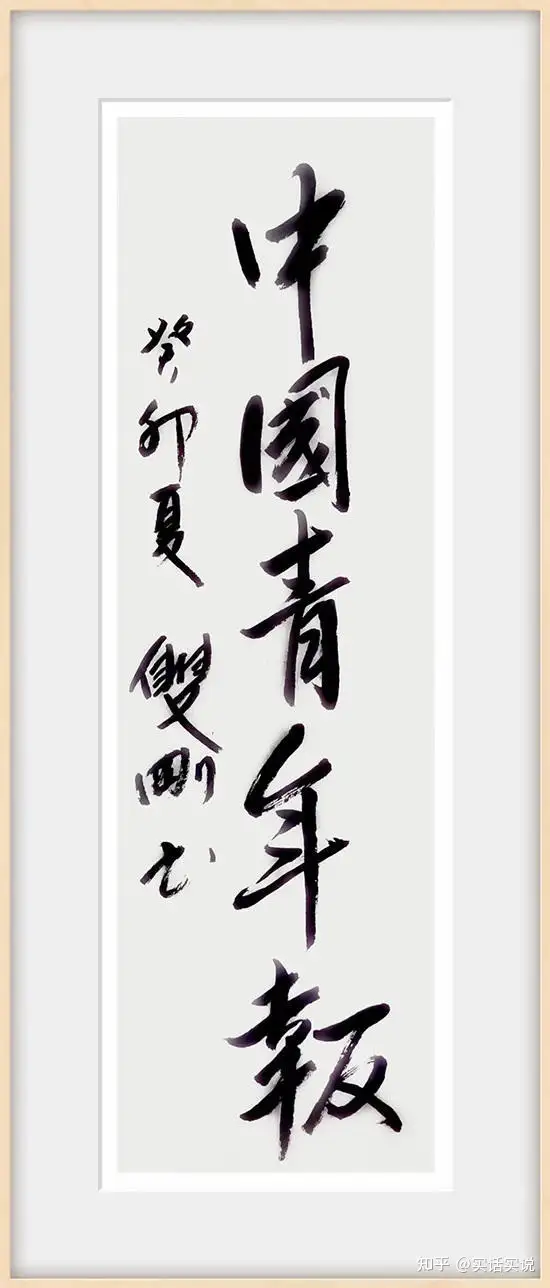 中國青年報
癸卯夏 雙剛书
知乎 @实话实说